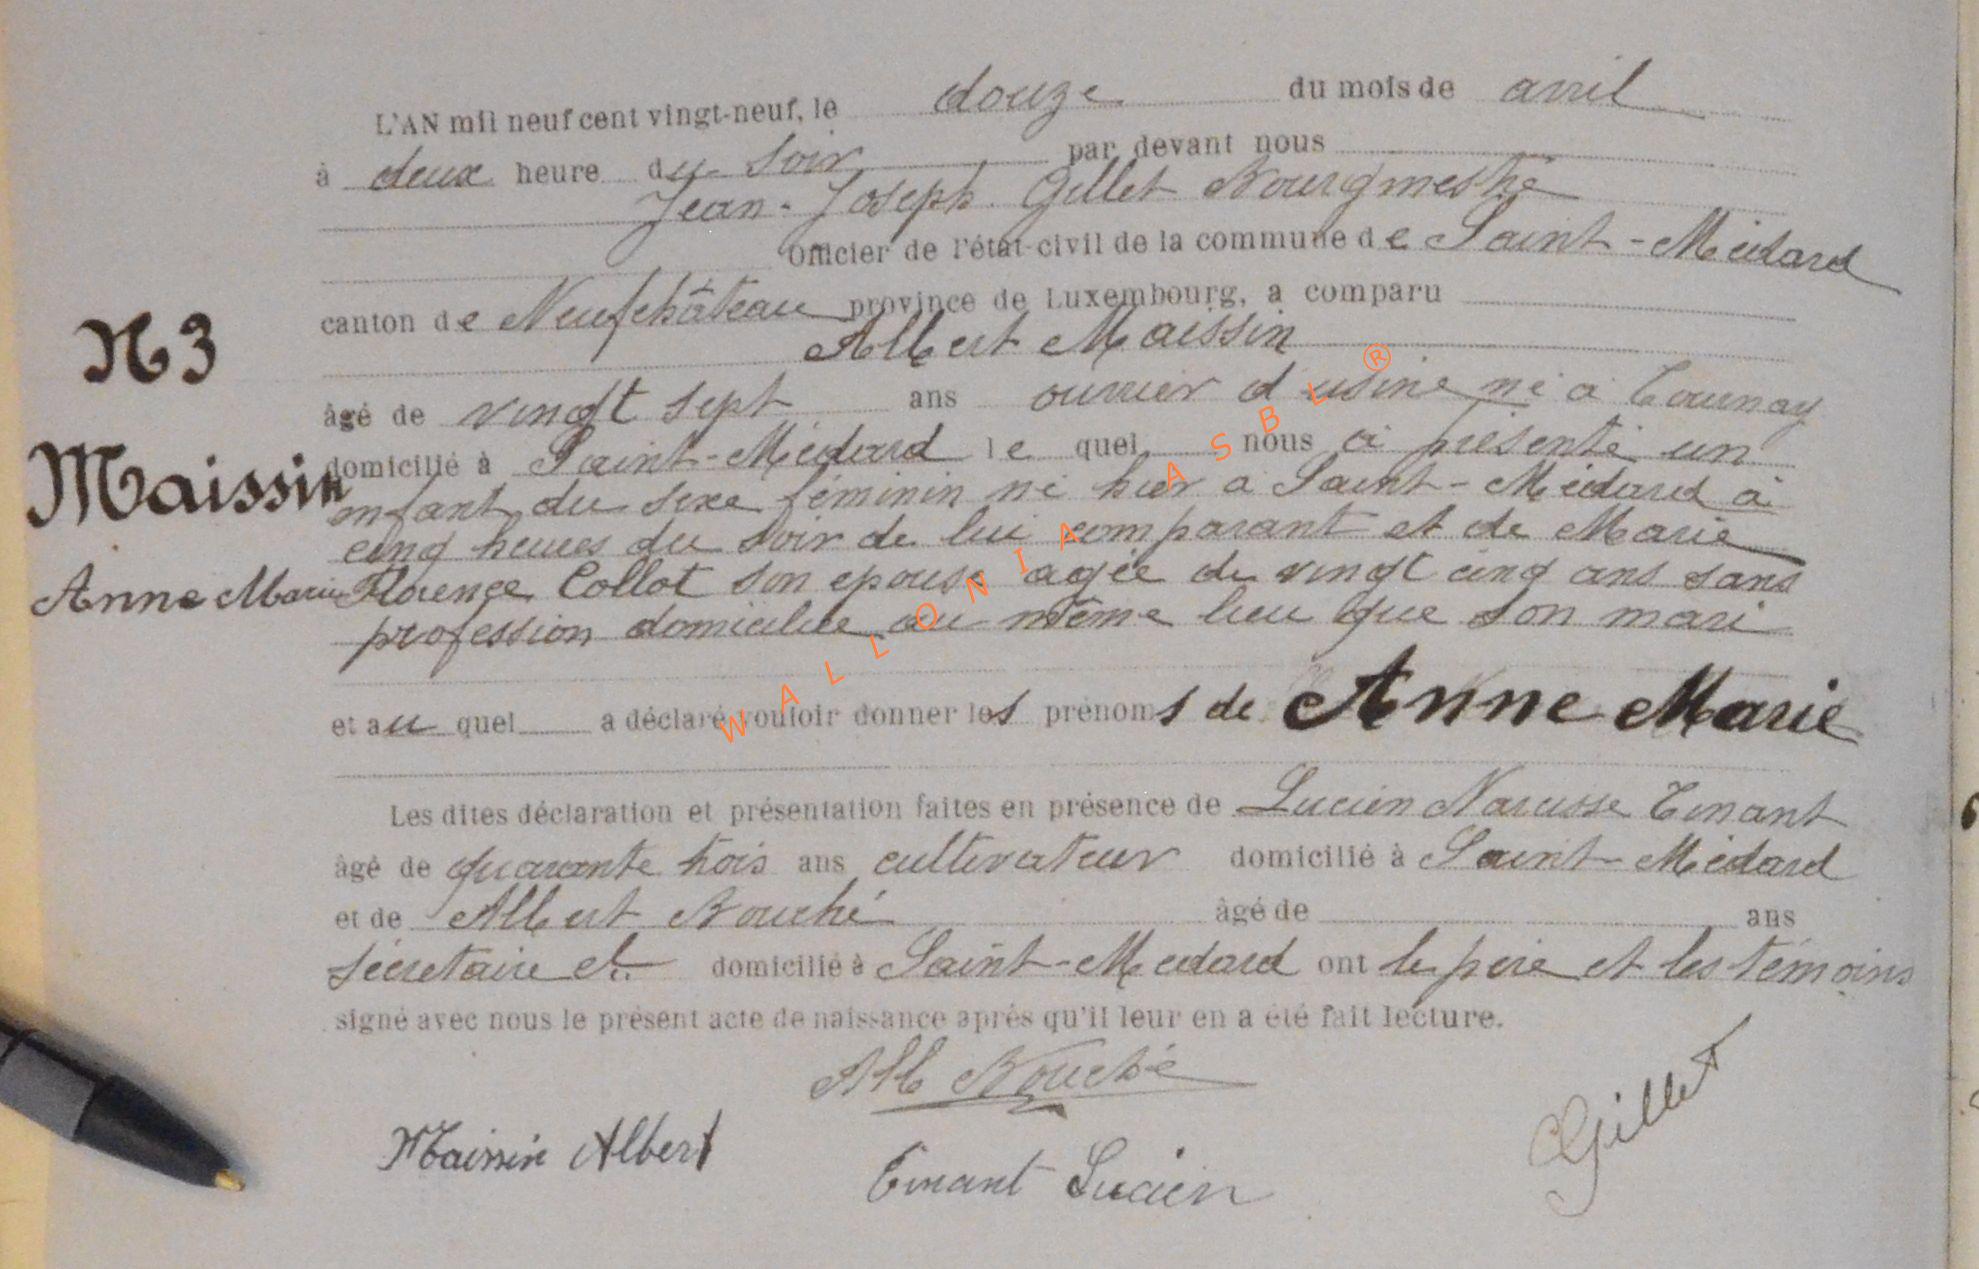 L'AN mil neuf cent vingt-neuf, le douze du mois de avril
à deux heure du soir par devant nous
Jean-Joseph Gillet Bourgmestre
Officier de l'état-civil de la commune de Saint-Médard
canton de Neufchâteau province de Luxembourg, a comparu
Albert Maissin
N3
âgé de vingt sept ans ouvrier d'usine né à Tournay
domicilié à Saint-Médard le quel nous a présenté un
Maissin
enfant du sexe féminin né hier à Saint-Médard à
cinq heures du soir de lui comparant et de Marie
Anne Marie
Florence Collot son epouse agée de vingt cinq ans sans
profession domiciliée au même lieu que son mari
et au quel a déclaré vouloir donner les prénoms de Anne Marie
Les dites déclaration et présentation faites en présence de Lucien Narcisse Tinant
âgé de quarante trois ans cultivateur domicilié à Saint-Médard
et de Albert Bouché âgé de ans
sécretaire cl. domicilié à Saint-Médard ont le père et les témoins
signé avec nous le présent acte de naissance après qu'il leur en a été fait lecture.
Alb Bouché
Maissin Albert
Tinant Lucien
Gillet
WALLONIA ASBL ®